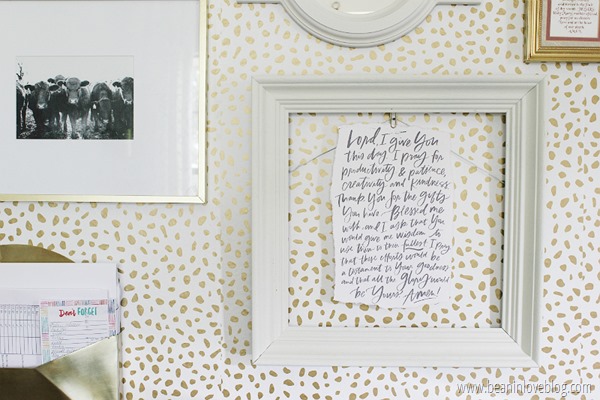 Lord, I give You
this day. I pray for
productivity & patience,
creativity and kindness.
Thank You for the gifts
You have Blessed me
with and I ask that You
would give me wisdom to
use them to their fullest. I pray
that these efforts would be
a testament to Your goodness
and that all the glory would
be Yours. Amen!
Don't FORGET
www.beaninloveblog.com